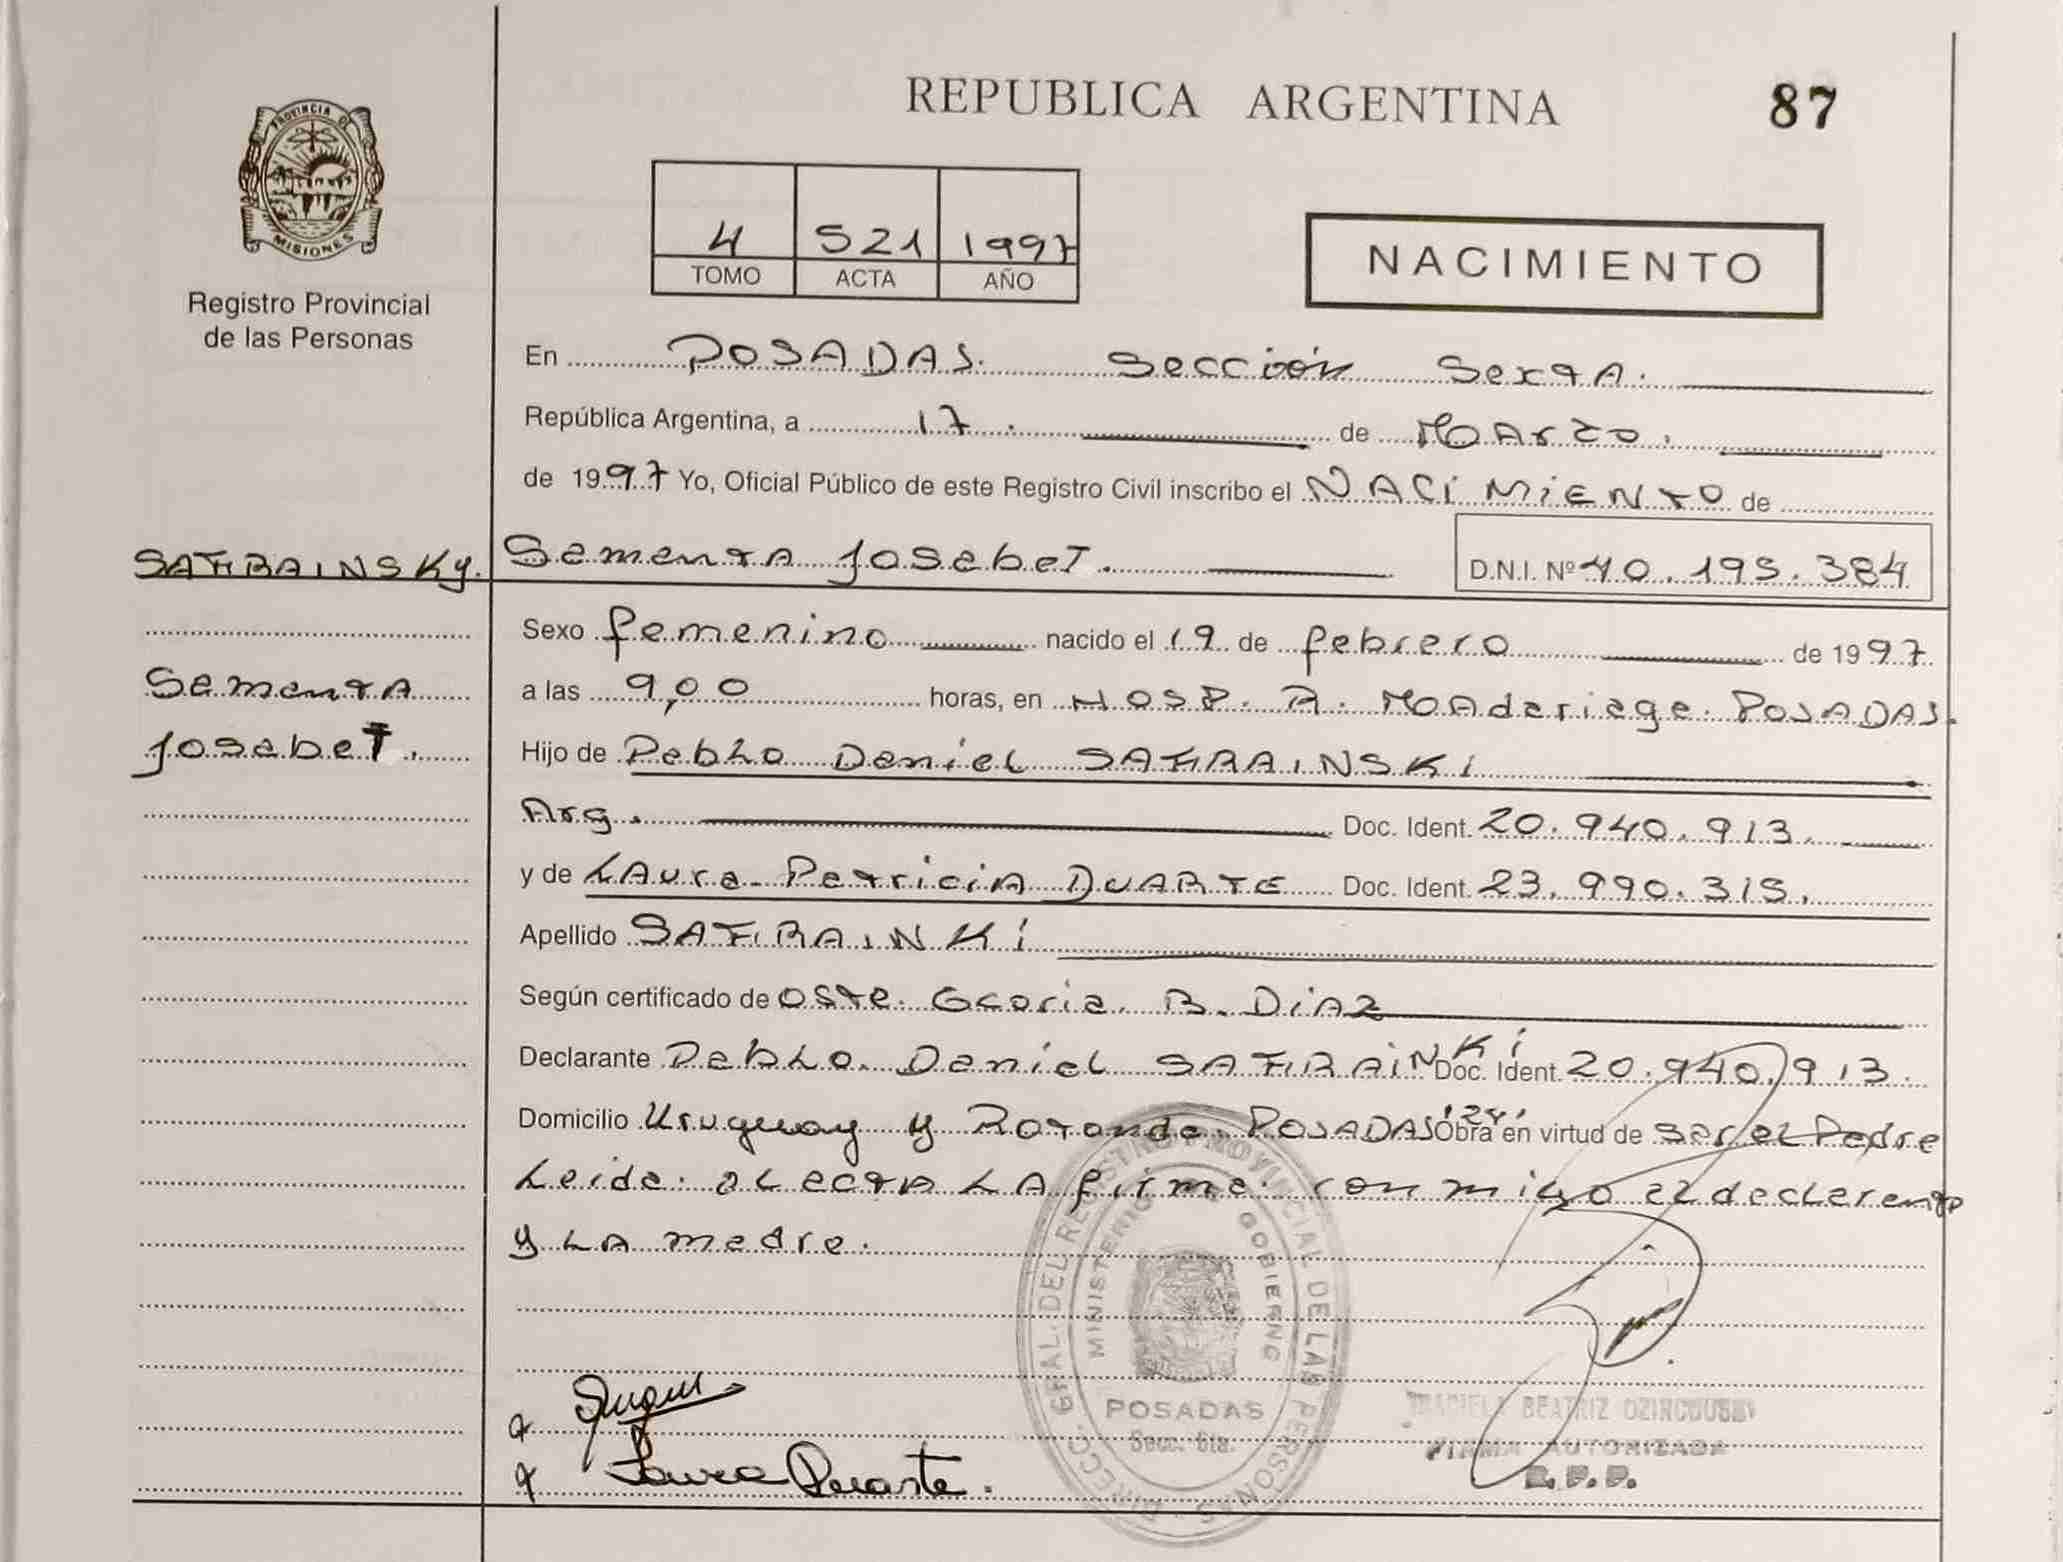 REPUBLICA ARGENTINA
87
PROVINCIA DE
MISIONES
Registro Provincial
de las Personas
4 521 1997
TOMO ACTA AÑO
NACIMIENTO
En POSADAS. Sección Sexta.
República Argentina, a 17. de Marzo.
de 1997 Yo, Oficial Público de este Registro Civil inscribo el NACIMIENTO de
SAFIRAINSKY. Sementa Josebet. D.N.I. Nº 40.195.384
Sementa
Josebet.
Sexo femenino nacido el 19 de febrero de 1997
a las 9,00 horas, en HOSP. R. Madariaga. POSADAS.
Hijo de Pablo Daniel SAFIRAINSKI
Arg. Doc. Ident. 20.940.913.
y de Laura Patricia DUARTE Doc. Ident. 23.990.315.
Apellido SAFIRAINKI
Según certificado de OSTE. Gloria B. DiAZ
Declarante Pablo Daniel SAFIRAINKI Doc. Ident. 20.940.913.
Domicilio Uruguay y Rotonda. POSADAS Obra en virtud de ser el Padre
Leida el acta la firma conmigo el declarante
y la madre.
DIRECC. GRAL. DEL REGISTRO PROVINCIAL DE LAS PERSONAS
MINISTERIO GOBIERNO
POSADAS
Secc. 6ta.
Laura Duarte.
BEATRIZ
FIRMA AUTORIZADA
R.P.P.